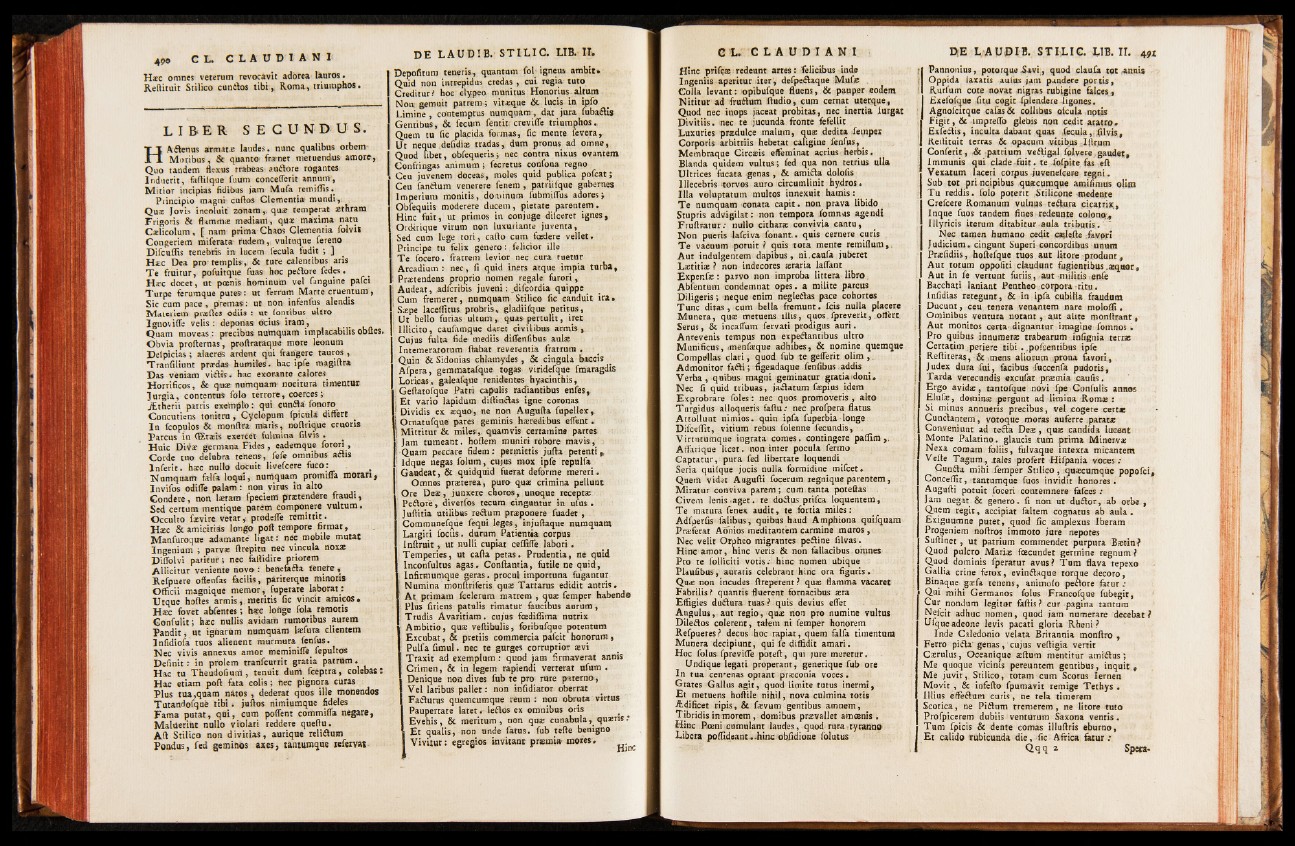 490 CL. CLAUDIANI
Hæc omnes veterum revocavit adorea lauros.
Reſtituit Stilico cunctos tibi, Roma, triumphos.
LIBER SECUNDUS.
HActenus armatæ laudes. nunc qualibus orbem
Moribus, & quanto frænet metuendus amore,
Quo tandem flexus trabeas auctore rogantes
Induerit, faſtiſque ſuum conceſſerit annum,
Mitior incipias fidibus jam Muſa remiſſis.
Principio magni cuſtos Clementia mundi,
Quæ Jovis incoluit zonam, quæ temperat æthram
Frigoris & flammæ mediam, quæ maxima natu
Cælicolum, [ nam prima Chaos Clementia ſolvit
Congeriem miſerata rudem, vultuque ſereno
Diſcuſſis tenebris in lucem ſecula fudit ; ]
Hæc Dea pro templis, & ture calentibus aris
Te fruitur, poſuitque ſuas hoc pectore ſedes.
Hæc docet, ut pœnis hominum vel ſanguine paſci
Turpe ferumque putes : ut ferrum Marte cruentum,
Sic cum pace, premas : ut non infenſus alendis
Materiem præſtes odiis : ut ſontibus ultro
Ignoviſſe velis : deponas ocius iram,
Quam moveas : precibus numquam implacabilis obſtes.
Obvia proſternas, proſtrataque more leonum
Deſpicias ; alacres ardent qui frangere tauros,
Tranſiliunt prædas humiles. hac ipſe magiſtra
Das veniam victis. hac exorante calores
Horrificos, & quæ numquam nocitura timentur
Jurgia, contentus ſolo terrore, coerces ;
Ætherii patris exemplo : qui cuncta ſonoro
Concutiens tonitru, Cyclopum ſpicula differt
In ſcopulos & monſtra maris, noſtrique cruoris
Parcus in Œtæis exercet fulmina ſilvis.
Huic Divæ germana Fides, eademque ſorori,
Corde tuo delubra tenens, ſeſe omnibus actis
Inſerit. hæc nullo docuit liveſcere fuco :
Numquam falſa loqui, numquam promiſſa morari,
Inviſos odiſſe palam : non virus in alto
Condere, non lætam ſpeciem prætendere fraudi,
Sed certum mentique parem componere vultum.
Occulto ſævire vetat, prodeſſe remittit.
Hæc & amicitias longo poſt tempore firmat,
Manſuroque adamante ligat : nec mobile mutat
Ingenium ; parvæ ſtrepitu nec vincula noxæ
Diſſolvi patitur ; nec faſtidire priorem
Allicitur veniente novo : benefacta tenere,
Reſpuere offenſas facilis, pariterque minoris
Officii magnoique memor, ſuperare laborat :
Utque hoſtes armis, meritis ſic vincit amicos.
Hæc fovet abſentes ; hæc longe ſola remotis
Conſulit ; hæc nullis avidam rumoribus aurem
Pandit, ut ignarum numquam læſura clientem
Inſidioſa tuos alienent murmura ſenſus.
Nec vivis annexus amor meminiſſe ſepultos
Deſinit : in prolem tranſcurrit gratia patrum.
Hac tu Theudoſium, tenuit dum ſceptra, colebas :
Hac etiam poſt fata colis ; nec pignora curas
Plus tua, quam natos, dederat quos ille monendos
Tutandoſque tibi. juſtos nimiumque fideles
Fama putat, qui, cum poſſent commiſſa negare,
Maluerint nullo violati reddere queſtu.
Aſt Stilico non divitias, aurique relictum
Pondus, ſed geminos axes, tantumque reſervat
DE LAUDIB. STILIC. LIB. II.
Depoſitum teneris, quantum ſol igneus ambit.
Quid non intrepidus credas, cui regia tuto
Creditur? hoc clypeo munitus Honorius altum
Non gemuit patrem ; vitæque & lucis in ipſo
Limine, contemptus numquam, dat jura ſubactis
Gentibus, & ſecum ſentit creviſſe triumphos.
Quem tu ſic placida formas, ſic mente ſevera,
Ut neque deſidiæ tradas, dum pronus ad omne,
Quod libet, obſequeris ; nec contra nixus ovantem
Confringas animum ; ſecretus conſona regno
Ceu juvenem doceas, moles quid publica poſcat ;
Ceu ſanctum venerere ſenem, patriſque gubernes
Imperium monitis, dominum ſubmiſſus adores ;
Obſequiis moderere ducem, pietate parentem.
Hinc fuit, ut primos in conjuge diſceret ignes,
Ordirique virum non luxuriante juventa,
Sed cum lege tori, caſto cum fœdere vellet.
Principe tu felix genero : felicior ille
Te ſocero. fratrem levior nec cura tuetur
Arcadium : nec, ſi quid iners atque impia turba,
Prætendens proprio nomen regale furori,
Audeat, adſcribis juveni : diſcordia quippe
Cum fremeret, numquam Stilico ſic canduit ira.
Sæpe laceſſitus probris, gladiiſque petitus,
Ut bello furias ultum, quas pertulit, iret
Illicito, cauſamque daret civilibus armis,
Cujus fulta fide mediis diſſenſibus aulæ
Intemeratorum ſtabat reverentia fratrum.
Quin & Sidonias chlamydes, & cingula baccis
Aſpera, gemmataſque togas viridesque ſmaragdis
Loricas, galeaſque renidentes hyacinthis,
Geſtatoſque Patri capulis radiantibus enſes,
Et vario lapidum diſtinctas igne coronas
Dividis ex æquo, ne non Auguſta ſupellex,
Ornatuſque pares geminis hæredibus eſſent.
Mittitur & miles, quamvis certamine partes
Jam tumeant. hoſtem muniri robore mavis,
Quam peccare fidem : permittis juſta petenti,
Idque negas ſolum, cujus mox ipſe repulſa
Gaudeat, & quidquid fuerat deforme mereri.
Omnes præterea, puro quæ crimina pellunt
Ore Deæ, junxere choros, unoque receptæ
Pectore, diverſos tecum cinguntur in uſus.
Juſtitia utilibus rectum præponere ſuadet,
Communeſque ſequi leges, injuſtaque numquam
Largiri ſociis. durum Patientia corpus
Inſtruit, ut nulli cupiat ceſſiſſe labori.
Temperies, ut caſta petas. Prudentia, ne quid
Inconſultus agas. Conſtantia, futile ne quid,
Infirmumque geras. procul importuna fugantur
Numina monſtriferis, quæ Tartarus edidit antris.
At primam ſcelerum matrem, quæ ſemper habendo
Plus ſitiens patulis rimatur faucibus aurum,
Trudis Avaritiam. cujus fœdiſſima nutrix
Ambitio, quæ veſtibulis, foribuſque potentum
Excubat, & pretiis commercia paſcit honorum,
Pulſa ſimul. nec te gurges corruptior ævi
Traxit ad exemplum : quod jam firmaverat annis
Crimen, & in legem rapiendi verterat uſum.
Denique non dives ſub te pro rure paterno,
Vel laribus pallet : non inſidiator oberrat
Facturus quemcumque reum : non obruta virtus
Paupertate latet. lectos ex omnibus oris
Evehis, & meritum, non quæ cunabula, quæris :
Et qualis, non unde ſatus. ſub teſte benigno
Vivitur : egregios invitant præmia mores.
Hinc
CL. CLAUDIANI
Hinc priſcæ redeunt artes : felicibus inde
Ingeniis aperitur iter, deſpectaque Muſæ
Colla levant : opibuſque fluens, & pauper eodem
Nititur ad fructum ſtudio, cum cernat uterque,
Quod nec inops jaceat probitas, nec inertia ſurgat
Divitiis. nec te jucunda fronte fefellit
Luxuries prædulce malum, quæ dedita ſemper
Corporis arbitriis hebetat caligine ſenſus,
Membraque Circæis effeminat acrius herbis.
Blanda quidem vultus ; ſed qua non tetrius ulla
Ultrices fucata genas, & amicta doloſis
Illecebris torvos auro circumlinit hydros.
Illa voluptatum multos innexuit hamis :
Te numquam conata capit. non prava libido
Stupris advigilat : non tempora ſomnus agendi
Fruſtratur : nullo citharæ convivia cantu,
Non pueris laſciva ſonant. quis cernere curis
Te vacuum potuit ? quis tota mente remiſſum,
Aut indulgentem dapibus, ni cauſa juberet
Lætitiæ ? non indecores æraria laſſant
Expenſæ : parvo non improba littera libro
Abſentum condemnat opes. a milite parcus
Diligeris ; neque enim neglectas pace cohortes
Tunc ditas, cum bella fremunt. ſcis nulla placere
Munera, quæ metuens illis, quos ſpreverit, offert
Serus, & incaſſum ſervati prodigus auri.
Antevenis tempus non expectantibus ultro
Munificus, menſæque adhibes, & nomine quemque
Compellas clari, quod ſub te geſſerit olim,
Admonitor facti ; figendaque ſenſibus addis
Verba, quibus magni geminatur gratia doni.
Nec ſi quid tribuas, jactatum ſæpius idem
Exprobrare ſoles : nec quos promoveris, alto
Turgidus alloqueris faſtu : nec proſpera flatus
Attollunt nimios. quin ipſa ſuperbia longe
Diſceſſit, vitium rebus ſolenne ſecundis,
Virtutumque ingrata comes. contingere paſſim,
Affarique licet. non inter pocula ſermo
Captatur, pura ſed libertate loquendi
Seria quiſque jocis nulla formidine miſcet.
Quem videt Auguſti ſocerum regnique parentem,
Miratur conviva parem ; cum tanta poteſtas
Civem lenis agat. te doctus priſca loquentem,
Te matura ſenex audit, te fortia miles :
Adſperſis ſalibus, quibus haud Amphiona quiſquam
Præferat Aonios meditantem carmine muros,
Nec velit Orpheo migrantes pectine ſilvas.
Hinc amor, hinc veris & non fallacibus omnes
Pro te ſolliciti votis. hinc nomen ubique
Plauſibus, auratis celebrant hinc ora figuris.
Quæ non incudes ſtreperent? quæ flamma vacaret
Fabrilis? quantis fluerent fornacibus æra
Effigies ductura tuas? quis devius eſſet
Angulus, aut regio, quæ non pro numine vultus
Dilectos colerent, talem ni ſemper honorem
Reſpueres? decus hoc rapiat, quem falſa timentum
Munera decipiunt, qui ſe diffidit amari.
Hoc ſolus ſpreviſſe poteſt, qui jure meretur.
Undique legati properant, generique ſub ore
In tua centenas optant præconia voces.
Grates Gallus agit, quod limite tutus inermi,
Et metuens hoſtile nihil, nova culmina totis
Ædificet ripis, & ſævum gentibus amnem,
Tibridis in morem, domibus prævallet amœnis.
Hinc Pœni cumulant laudes, quod rura tyranno
Libera poſſideant. hinc obſidione ſolutus
DE LAUDIB. STILIC. LIB. II. 491
Pannonius, potorque Savi, quod clauſa tot annis
Oppida laxatis auſus jam pandere portis,
Rurſum cote novat nigras rubigine falces,
Exeſoſque ſitu cogit ſplendere ligones.
Agnoſcitque caſas & collibus oſcula notis
Figit, & impreſſo glebis non cedit aratro.
Exſectis, inculta dabant quas ſecula, ſilvis,
Reſtituit terras & opacum vitibus Iſtrum
Conſerit, & patrium vectigal ſolvere gaudet,
Immunis qui clade fuit. te ſoſpite fas eſt
Vexatum laceri corpus juveneſcere regni.
Sub tot principibus quæcumque amiſimus olim
Tu reddis. ſolo poterit Stilicone medente
Creſcere Romanum vulnus tectura cicatrix,
Inque ſuos tandem fines redeunte colono,
Illyricis iterum ditabitur aula tributis.
Nec tamen humano cedit cæleſte favori
Judicium. cingunt Superi concordibus unum
Præſidiis, hoſteſque tuos aut litore produnt,
Aut totum oppoſiti claudunt fugientibus æquor,
Aut in ſe vertunt furiis, aut militis enſe
Bacchati laniant Pentheo corpora ritu.
Inſidias retegunt, & in ipſa cubilia fraudum
Ducunt, ceu tenera venantem nare moloſſi.
Ominibus ventura notant, aut alite monſtrant,
Aut monitos certa dignantur imagine ſomnos.
Pro quibus innumeræ trabearum inſignia terræ
Certatim petiere tibi. poſcentibus ipſe
Reſtiteras, & mens aliorum prona favori,
Judex dura ſui, facibus ſuccenſa pudoris,
Tarda verecundis excuſat præmia cauſis.
Ergo avidæ, tantoſque novi ſpe Conſulis annos
Eluſæ, dominæ pergunt ad limina Romæ :
Si minus annueris precibus, vel cogere certæ
Cunctantem, votoque moras auferre paratæ
Conveniunt ad tecta Deæ, quæ candida lucent
Monte Palatino. glaucis tum prima Minervæ
Nexa comam foliis, fulvaque intexta micantem
Veſte Tagum, tales profert Hiſpania voces :
Cuncta mihi ſemper Stilico, quæcumque popoſci,
Conceſſit, tantumque ſuos invidit honores.
Auguſti potuit ſoceri contemnere faſces :
Jam negat & genero. ſi non ut ductor, ab orbe,
Quem regit, accipiat ſaltem cognatus ab aula.
Exiguumne putet, quod ſic amplexus Iberam
Progeniem noſtros immoto jure nepotes
Suſtinet, ut patrium commendet purpura Bætin?
Quod pulcro Mariæ fœcundet germine regnum?
Quod dominis ſperatur avus? Tum flava repexo
Gallia crine ferox, evinctaque torque decoro,
Binaque gæſa tenens, animoſo pectore fatur :
Qui mihi Germanos ſolus Francoſque ſubegit,
Cur nondum legitur faſtis? cur pagina tantum
Neſcit adhuc nomen, quod jam numerare decebat?
Uſqueadeone levis pacati gloria Rheni?
Inde Caledonio velata Britannia monſtro,
Ferro picta genas, cujus veſtigia verrit
Cærulus, Oceanique æſtum mentitur amictus ;
Me quoque vicinis pereuntem gentibus, inquit,
Me juvit, Stilico, totam cum Scotus Iernen
Movit, & infeſto ſpumavit remige Tethys.
Illius effectum curis, ne tela timerem
Scotica, ne Pictum tremerem, ne litore tuto
Proſpicerem dubiis venturum Saxona ventis.
Tum ſpicis & dente comas illuſtris eburno,
Et calido rubicunda die, ſic Africa fatur :
Qqq 2 Spera-